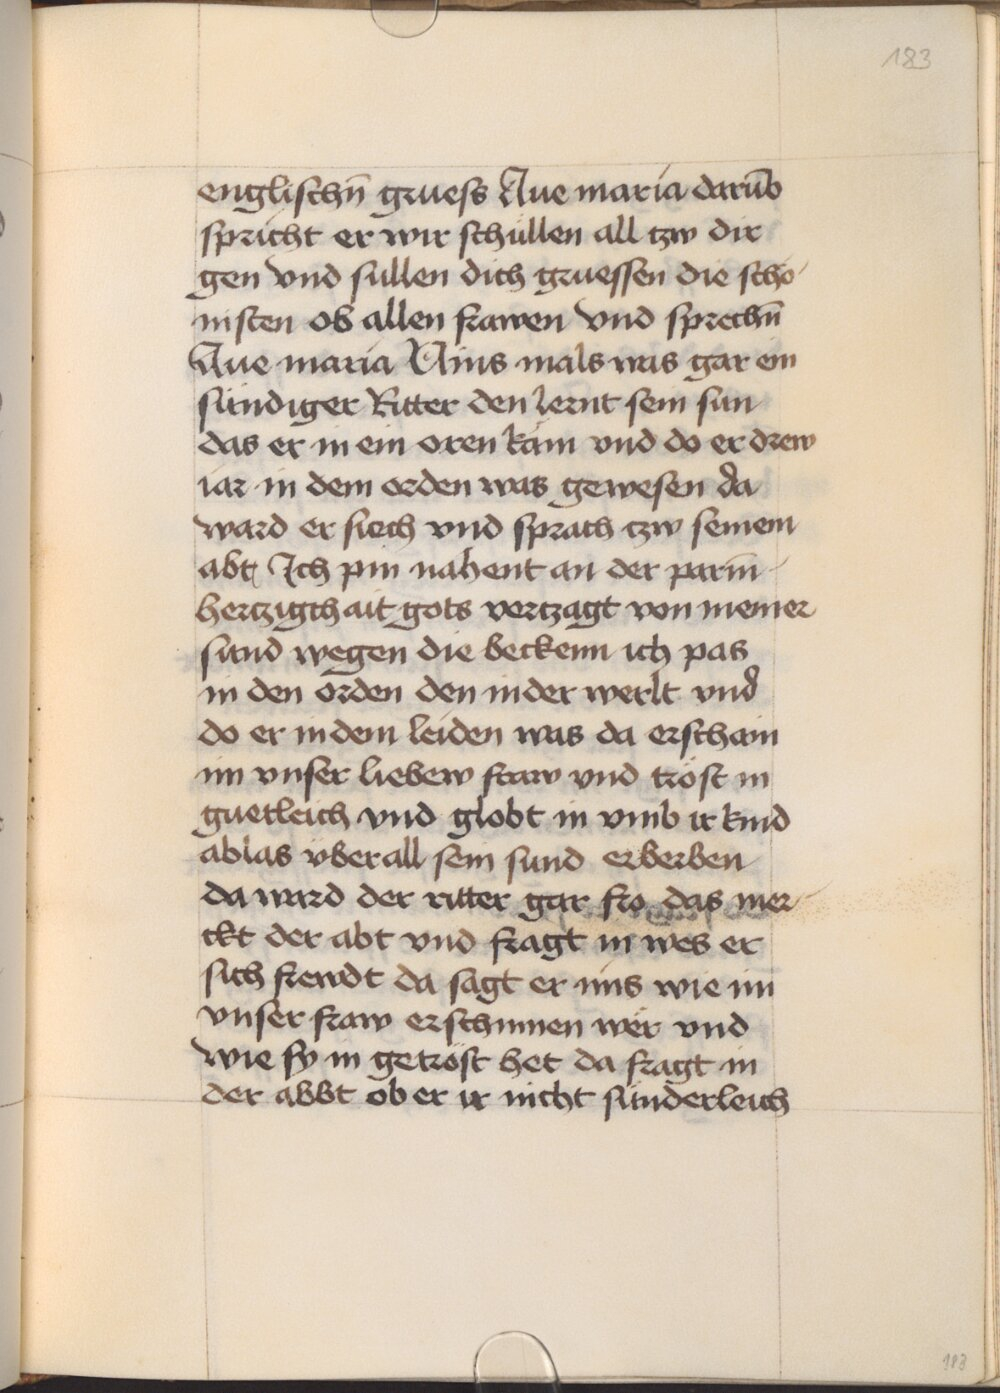 183
englischn̄ gruess Aue maria darūb
spricht er wir schüllen all tzw dir
gen vnd sullen dich gruessen die scho
nisten ob allen frawen vnd sprechn̄
Aue maria Ains mals was gar ein
sündiger Ritter den lernt sein sun
das er in ein oren kam vnd do er drew
iar in dem orden was gewesen da
ward er siech vnd sprach tzw seinem
abt Ich pin nahent an der parm̄
hertzigchait gots vertzagt von meiner
sund wegen die beckenn ich pas
in den orden den in der werlt vnd
do er in dem leiden was da erschain
im vnser liebew fraw vnd tröst in
guetleich vnd globt in vmb ir kind
ablas vber all sein sund erberben
da ward der ritter gar fro das mer
ckt der abt vnd fragt in wes er
sich frewdt da sagt er ims wie im
vnser fraw erschinnen wer vnd
wie sy in getröst het da fragt in
der abbt ob er ir nicht sünderleich
183